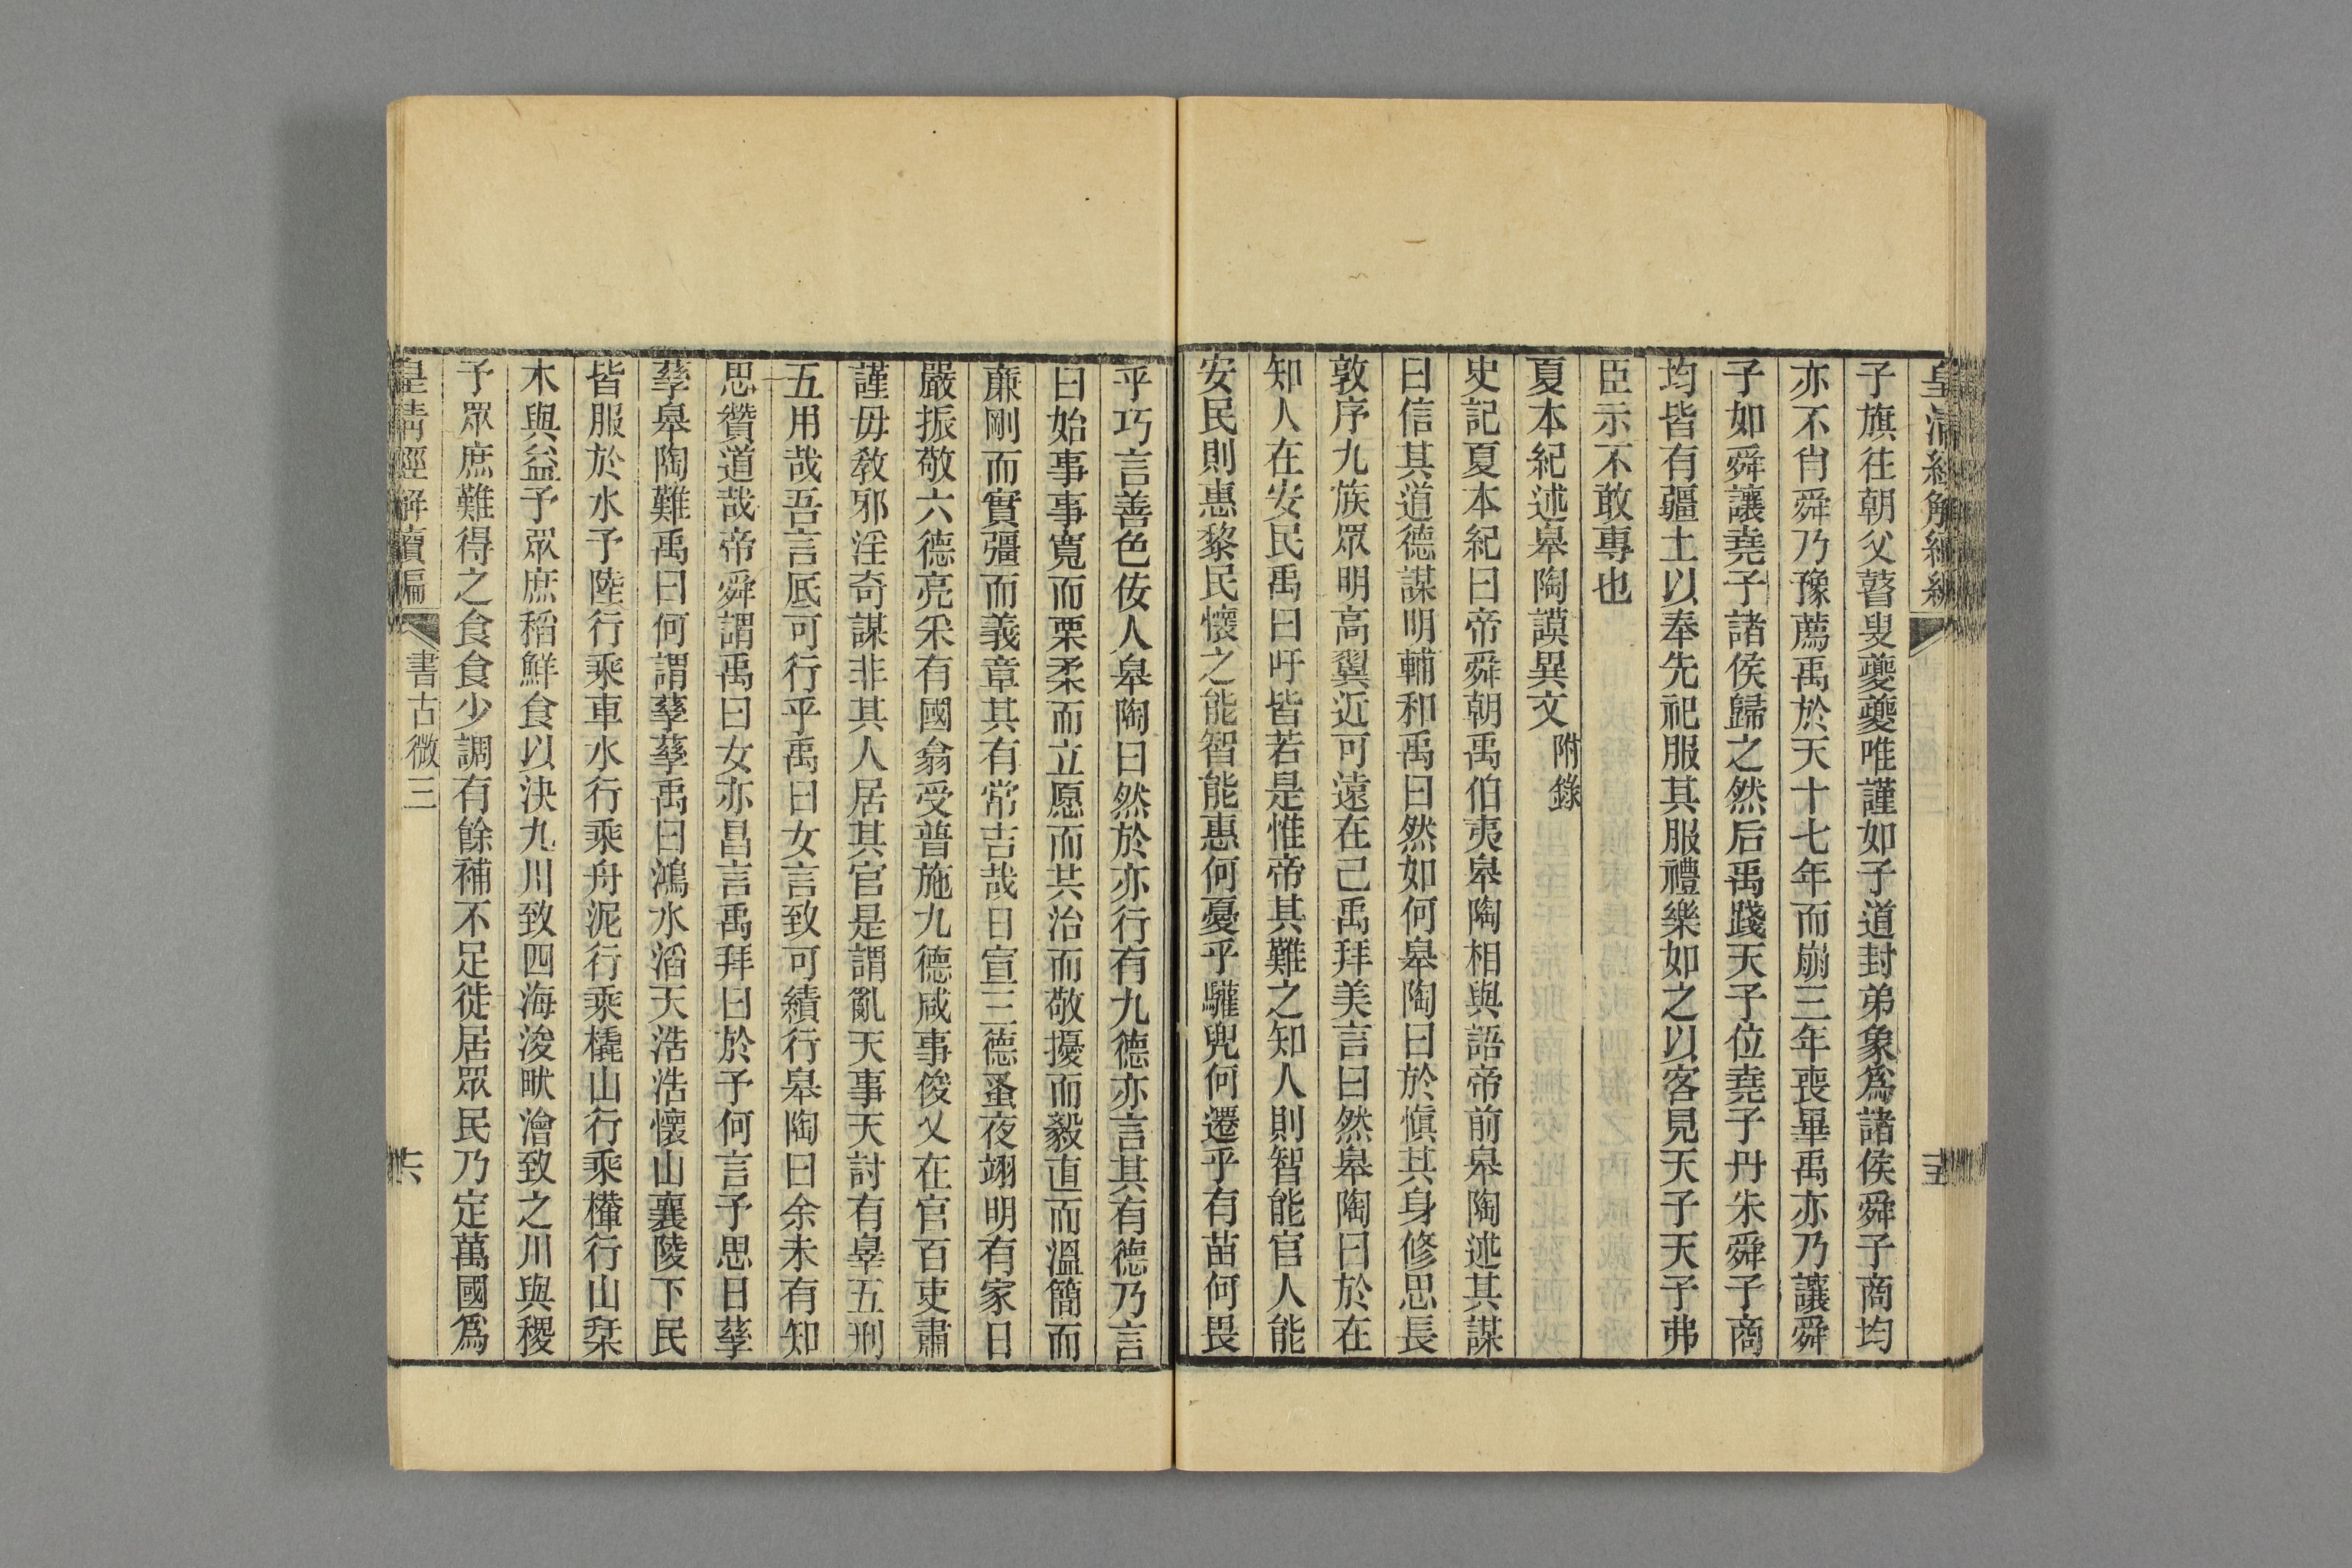 皇清經解續編
十五
子旗往朝父瞽叟夔夔唯謹如子道封弟象爲諸侯舜子商均
亦不肖舜乃豫薦禹於天十七年而崩三年喪畢禹亦乃讓舜
子如舜讓堯子諸侯歸之然后禹踐天子位堯子丹朱舜子商
均皆有疆土以奉先祀服其服禮樂如之以客見天子天子弗
臣示不敢專也
夏本紀述皋陶謨異文附錄
史記夏本紀曰帝舜朝禹伯夷皋陶相與語帝前皋陶述其謀
曰信其道德謀明輔和禹曰然如何皋陶曰於愼其身修思長
敦序九族眾明高翼近可遠在己禹拜美言曰然皋陶曰於在
知人在安民禹曰吁皆若是惟帝其難之知人則智能官人能
安民則惠黎民懷之能智能惠何憂乎驩兜何遷乎有苗何畏
乎巧言善色佞人皋陶曰然於亦行有九德亦言其有德乃言
曰始事事寬而栗柔而立愿而共治而敬擾而毅直而溫簡而
廉剛而實彊而義章其有常吉哉日宣三德蚤夜翊明有家日
嚴振敬六德亮采有國翕受普施九德咸事俊乂在官百吏肅
謹毋敎邪淫奇謀非其人居其官是謂亂天事天討有辠五刑
五用哉吾言厎可行乎禹曰女言致可績行皋陶曰余未有知
思贊道哉帝舜謂禹曰女亦昌言禹拜曰於予何言予思日孳
孳皋陶難禹曰何謂孳孳禹曰鴻水滔天浩浩懷山襄陵下民
皆服於水予陸行乘車水行乘舟泥行乘橇山行乘檋行山栞
木與益予眾庶稻鮮食以決九川致四海浚畎澮致之川與稷
予眾庶難得之食食少調有餘補不足徙居眾民乃定萬國爲
皇清經解續編
書古微三
十六